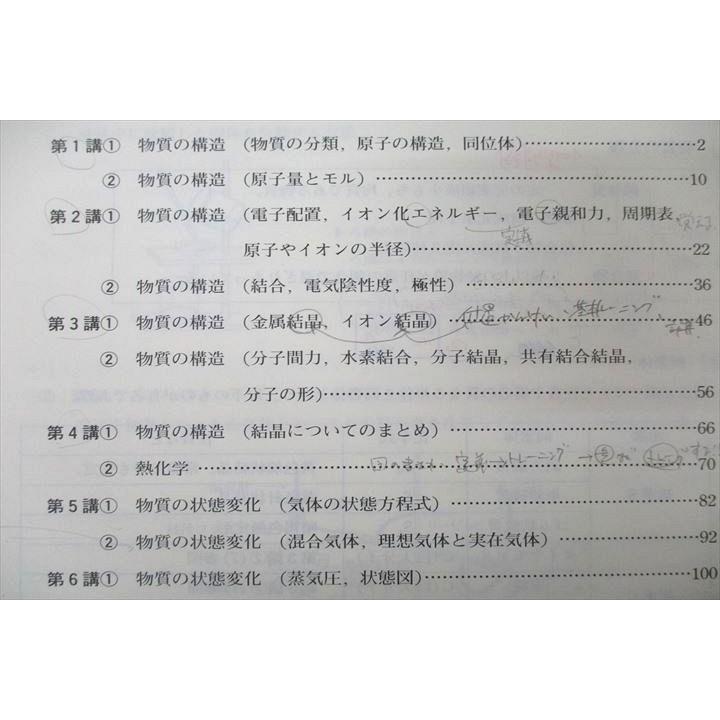 第1講① 物質の構造 (物質の分類,原子の構造,同位体)……………………………2
② 物質の構造 (原子量とモル)……………………………………………………10
第2講① 物質の構造 (電子配置,イオン化エネルギー,電子親和力,周期表,
覚える
原子やイオンの半径)……………………………………………22
定義
② 物質の構造 (結合,電気陰性度,極性)………………………………………36
第3講① 物質の構造 (金属結晶,イオン結晶)……………………………………46
② 物質の構造 (分子間力,水素結合,分子結晶,共有結合結晶,
分子の形)…………………………………………………………56
第4講① 物質の構造 (結晶についてのまとめ)……………………………………66
② 熱化学……………………………………………………………………………70
定義→トレーニング→
第5講① 物質の状態変化 (気体の状態方程式)……………………………………82
② 物質の状態変化 (混合気体,理想気体と実在気体)…………………………92
第6講① 物質の状態変化 (蒸気圧,状態図)………………………………………100